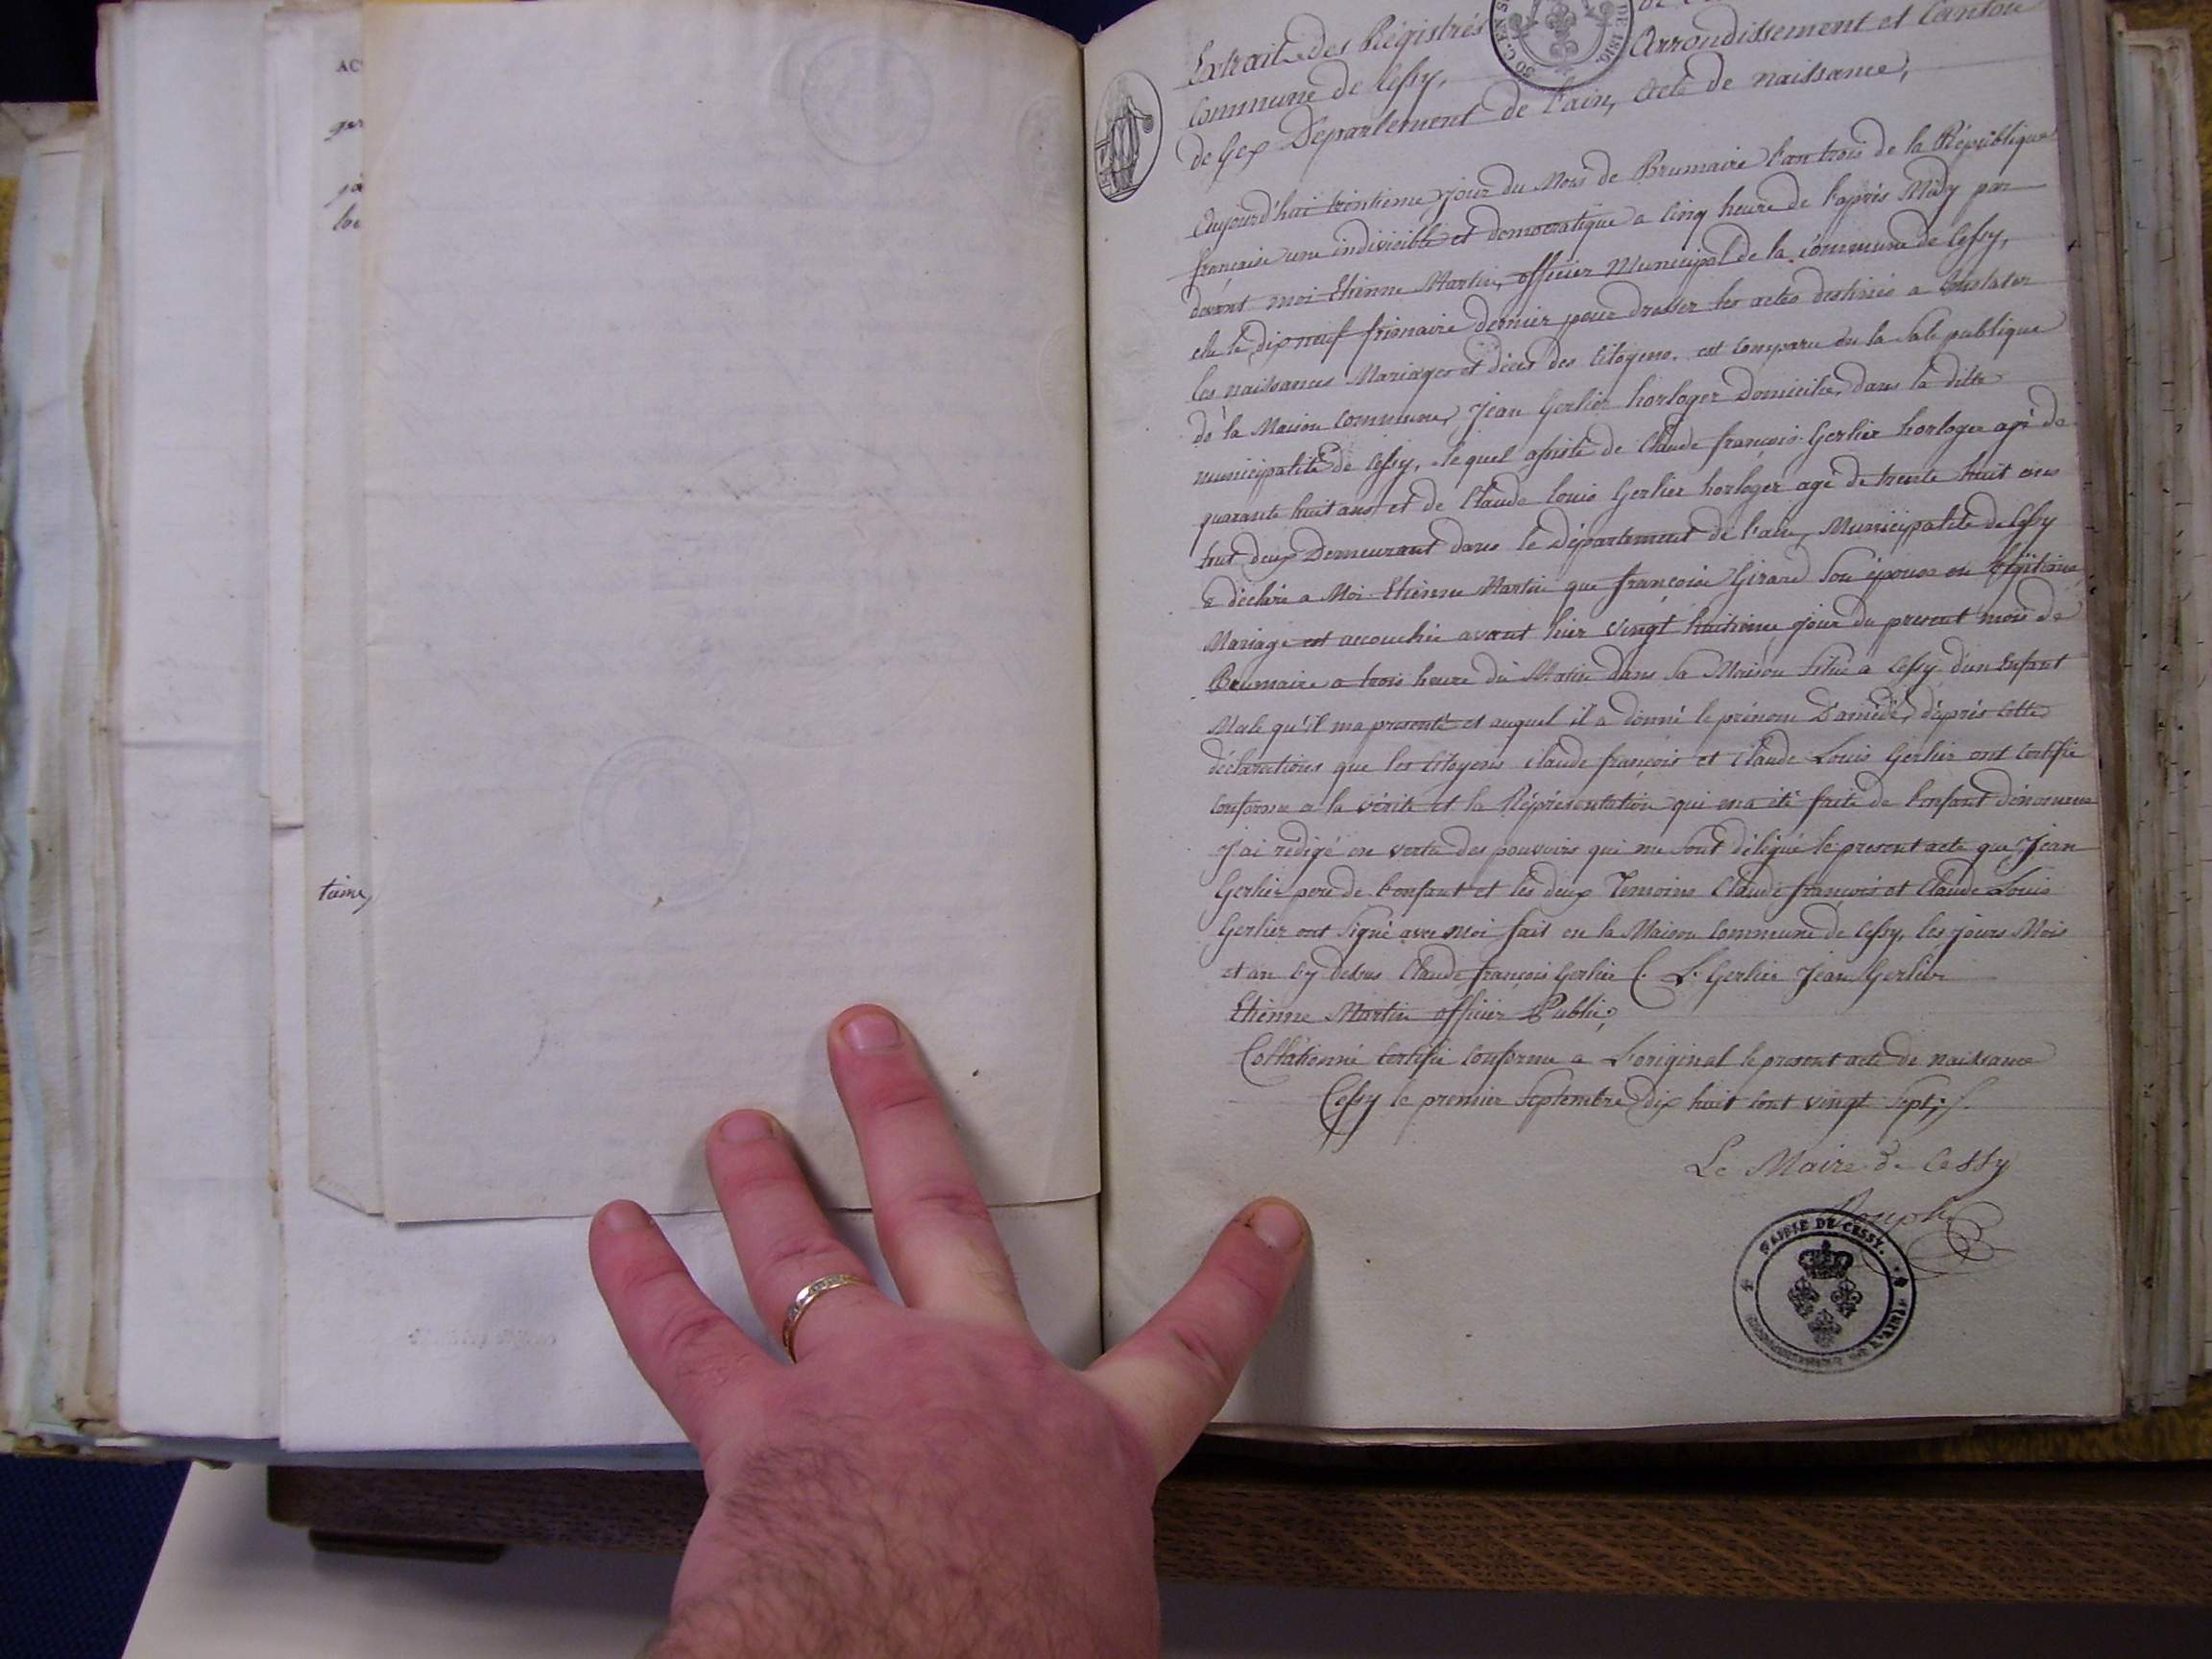 AC
ger
pa
time,
Extrait des Régistrés
Commune de Cessy,
Arrondissement et Canton
de Gex Département de l'ain, Acte de naissance,
DE 1816.
50 C. EN S
Aujourd'hui trentieme jour du Mois de Brumaire l'an trois de la République
française une indivisible et democratique a cinq heure de l'après Midy par
devant moi Etienne Martin, officier Municipal de la commune de Cessy,
elu le dix neuf frimaire dernier pour dresser les actes destinés a Constater
les naissances Mariages et décès des Citoyens. est comparu en la Sale publique
de la Maison Commune, Jean Gerlier horloger Domicilié, dans la ditte
municipalité de Cessy, lequel assisté de Claude françois Gerlier horloger agé de
quarante huit ans et de Claude Louis Gerlier horloger agé de trente huit ans
tout deux Demeurant dans le Département de l'ain, Municipalité de Cessy
a déclaré a Moi Etienne Martin que françoise Girard Son épouse en légitime
Mariage est accouchée avant hier vingt huitieme jour du present mois de
Brumaire a trois heure du Matin dans Sa Maison Située a Cessy d'un Enfant
Male qu'il ma presenté et auquel il a donné le prénom D'amédé, d'après cette
déclarations que les Citoyens Claude françois et Claude Louis Gerlier ont Certifié
Conforme a la vérité et la Réprésentation qui ma été faite de l'enfant dénommé
J'ai rédigé en vertu des pouvoirs qui me Sont délégué le present acte que Jean
Gerlier pere de l'enfant et les deux Temoins Claude françois et Claude Louis
Gerlier ont Signé avec Moi fait en la Maison Commune de Cessy, les jours Mois
et an cy dessus Claude françois Gerlier C. L. Gerlier Jean Gerlier
Etienne Martin officier Public,
Collationné Certifié Conforme a L'original le present acte de naissance
Cessy le premier Septembre dix huit cent vingt Sept,
Le Maire de Cessy
MAIRIE DE CESSY.